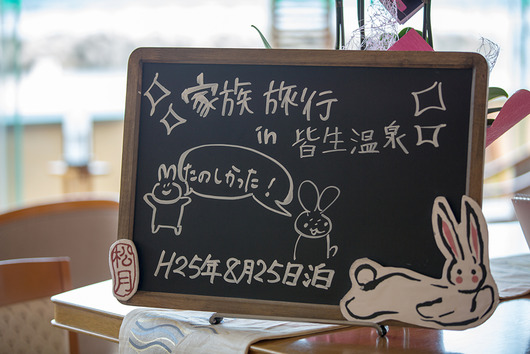 家族旅行
in 皆生温泉
たのしかった!
H25年8月25日泊
松月